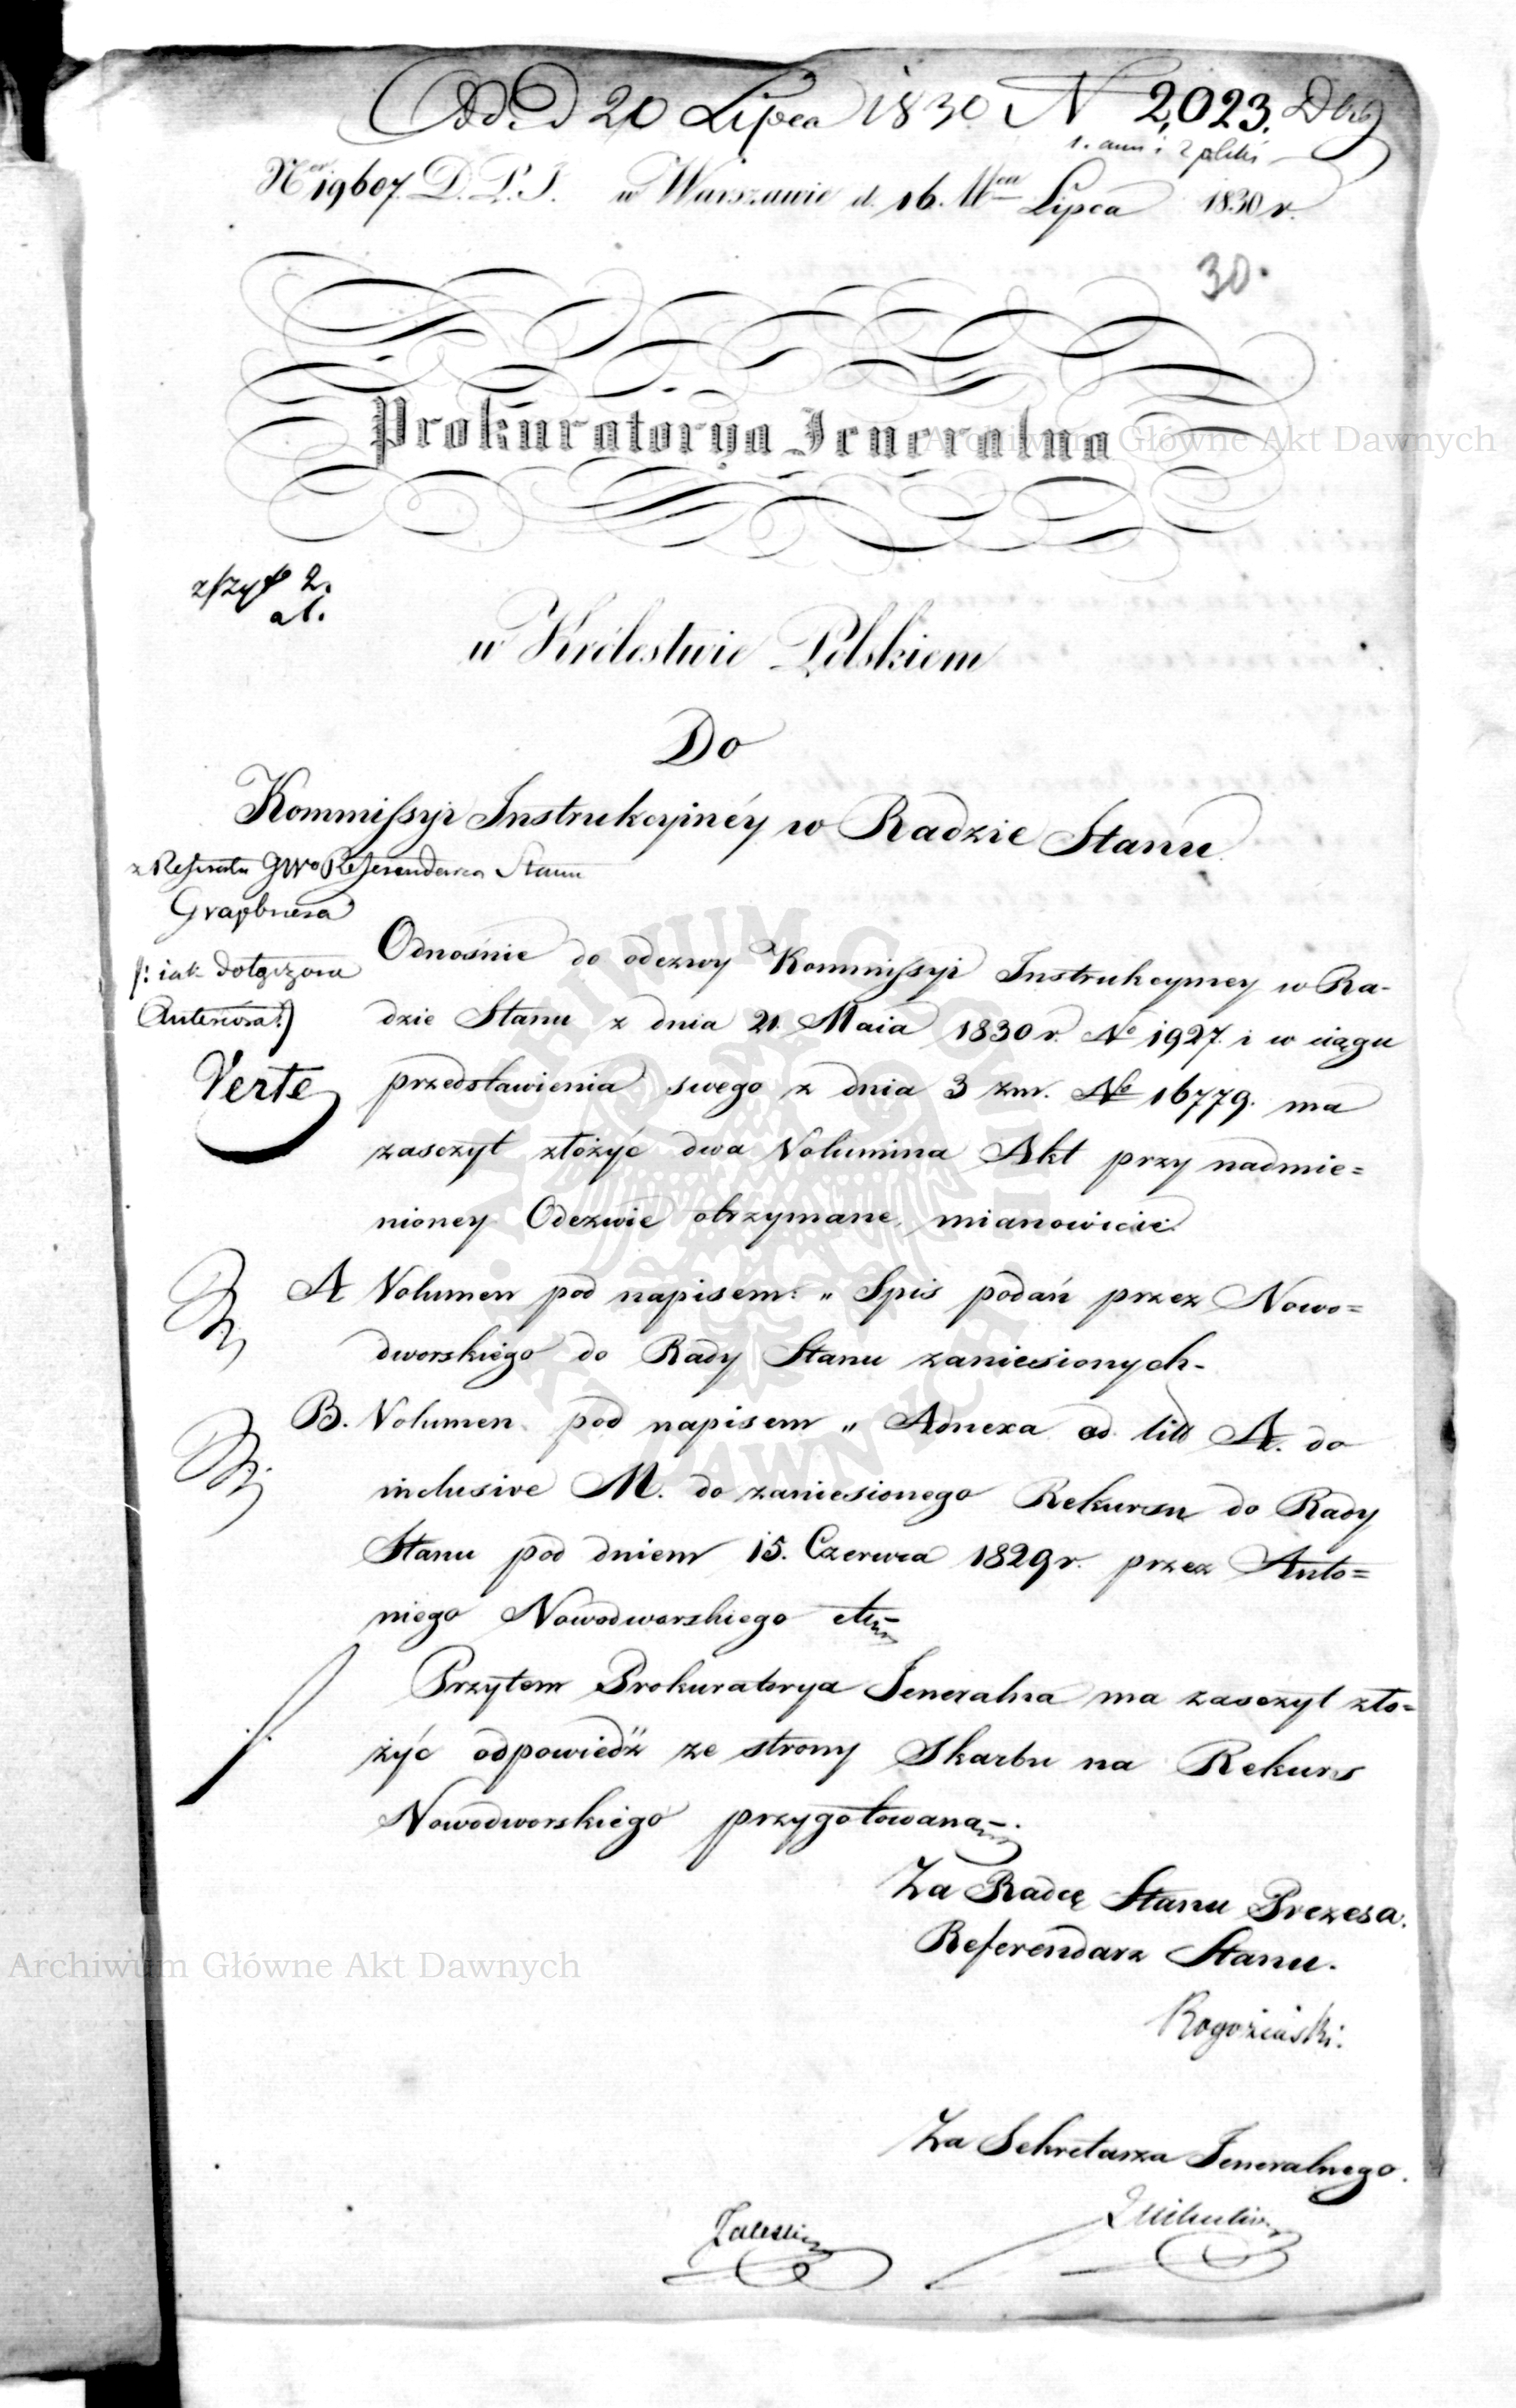 Odd. d 20 Lipca 1830 N 2,023.
1. ann i 2 pliki
Nro 19607. D. P. I. w Warszawie d. 16. Mca Lipca 1830 r.
30.
Prokuratorya Jeneralna
w Królestwie Polskiem
zszyt 2.
a 1.
Do
Kommissyi Instrukcyinéy w Radzie Stanu
z Referatu JWo Referendarza Stanu
Graybnera
/: iak dołączone
Anteriora :/
Verte
Odnośnie do odezwy Kommissyi Instrukcyiney w Ra-
dzie Stanu z dnia 21. Maia 1830 r. No 1927. i w ciągu
przedstawienia swego z dnia 3 zm. No 16779. ma
zasczyt złożyć dwa Volumina Akt przy nadmie=
nioney Odezwie otrzymane, mianowicie:
A Volumen pod napisem: „ Spis podań przez Nowo=
dworskiego do Rady Stanu zaniesionych-
B. Volumen pod napisem „ Adnexa ad litt A. do
inclusive M. do zaniesionego Rekursu do Rady
Stanu pod dniem 15. Czerwca 1829 r. przez Anto=
niego Nowodworskiego
Przytem Prokuratorya Jeneralna ma zasczyt zło=
żyć odpowiedź ze strony Skarbu na Rekurs
Nowodworskiego przygotowaną.
Za Radcę Stanu Prezesa.
Referendarz Stanu.
Rogoziński.
Za Sekretarza Jeneralnego.
Zaleski
Archiwum Główne Akt Dawnych
Archiwum Główne Akt Dawnych